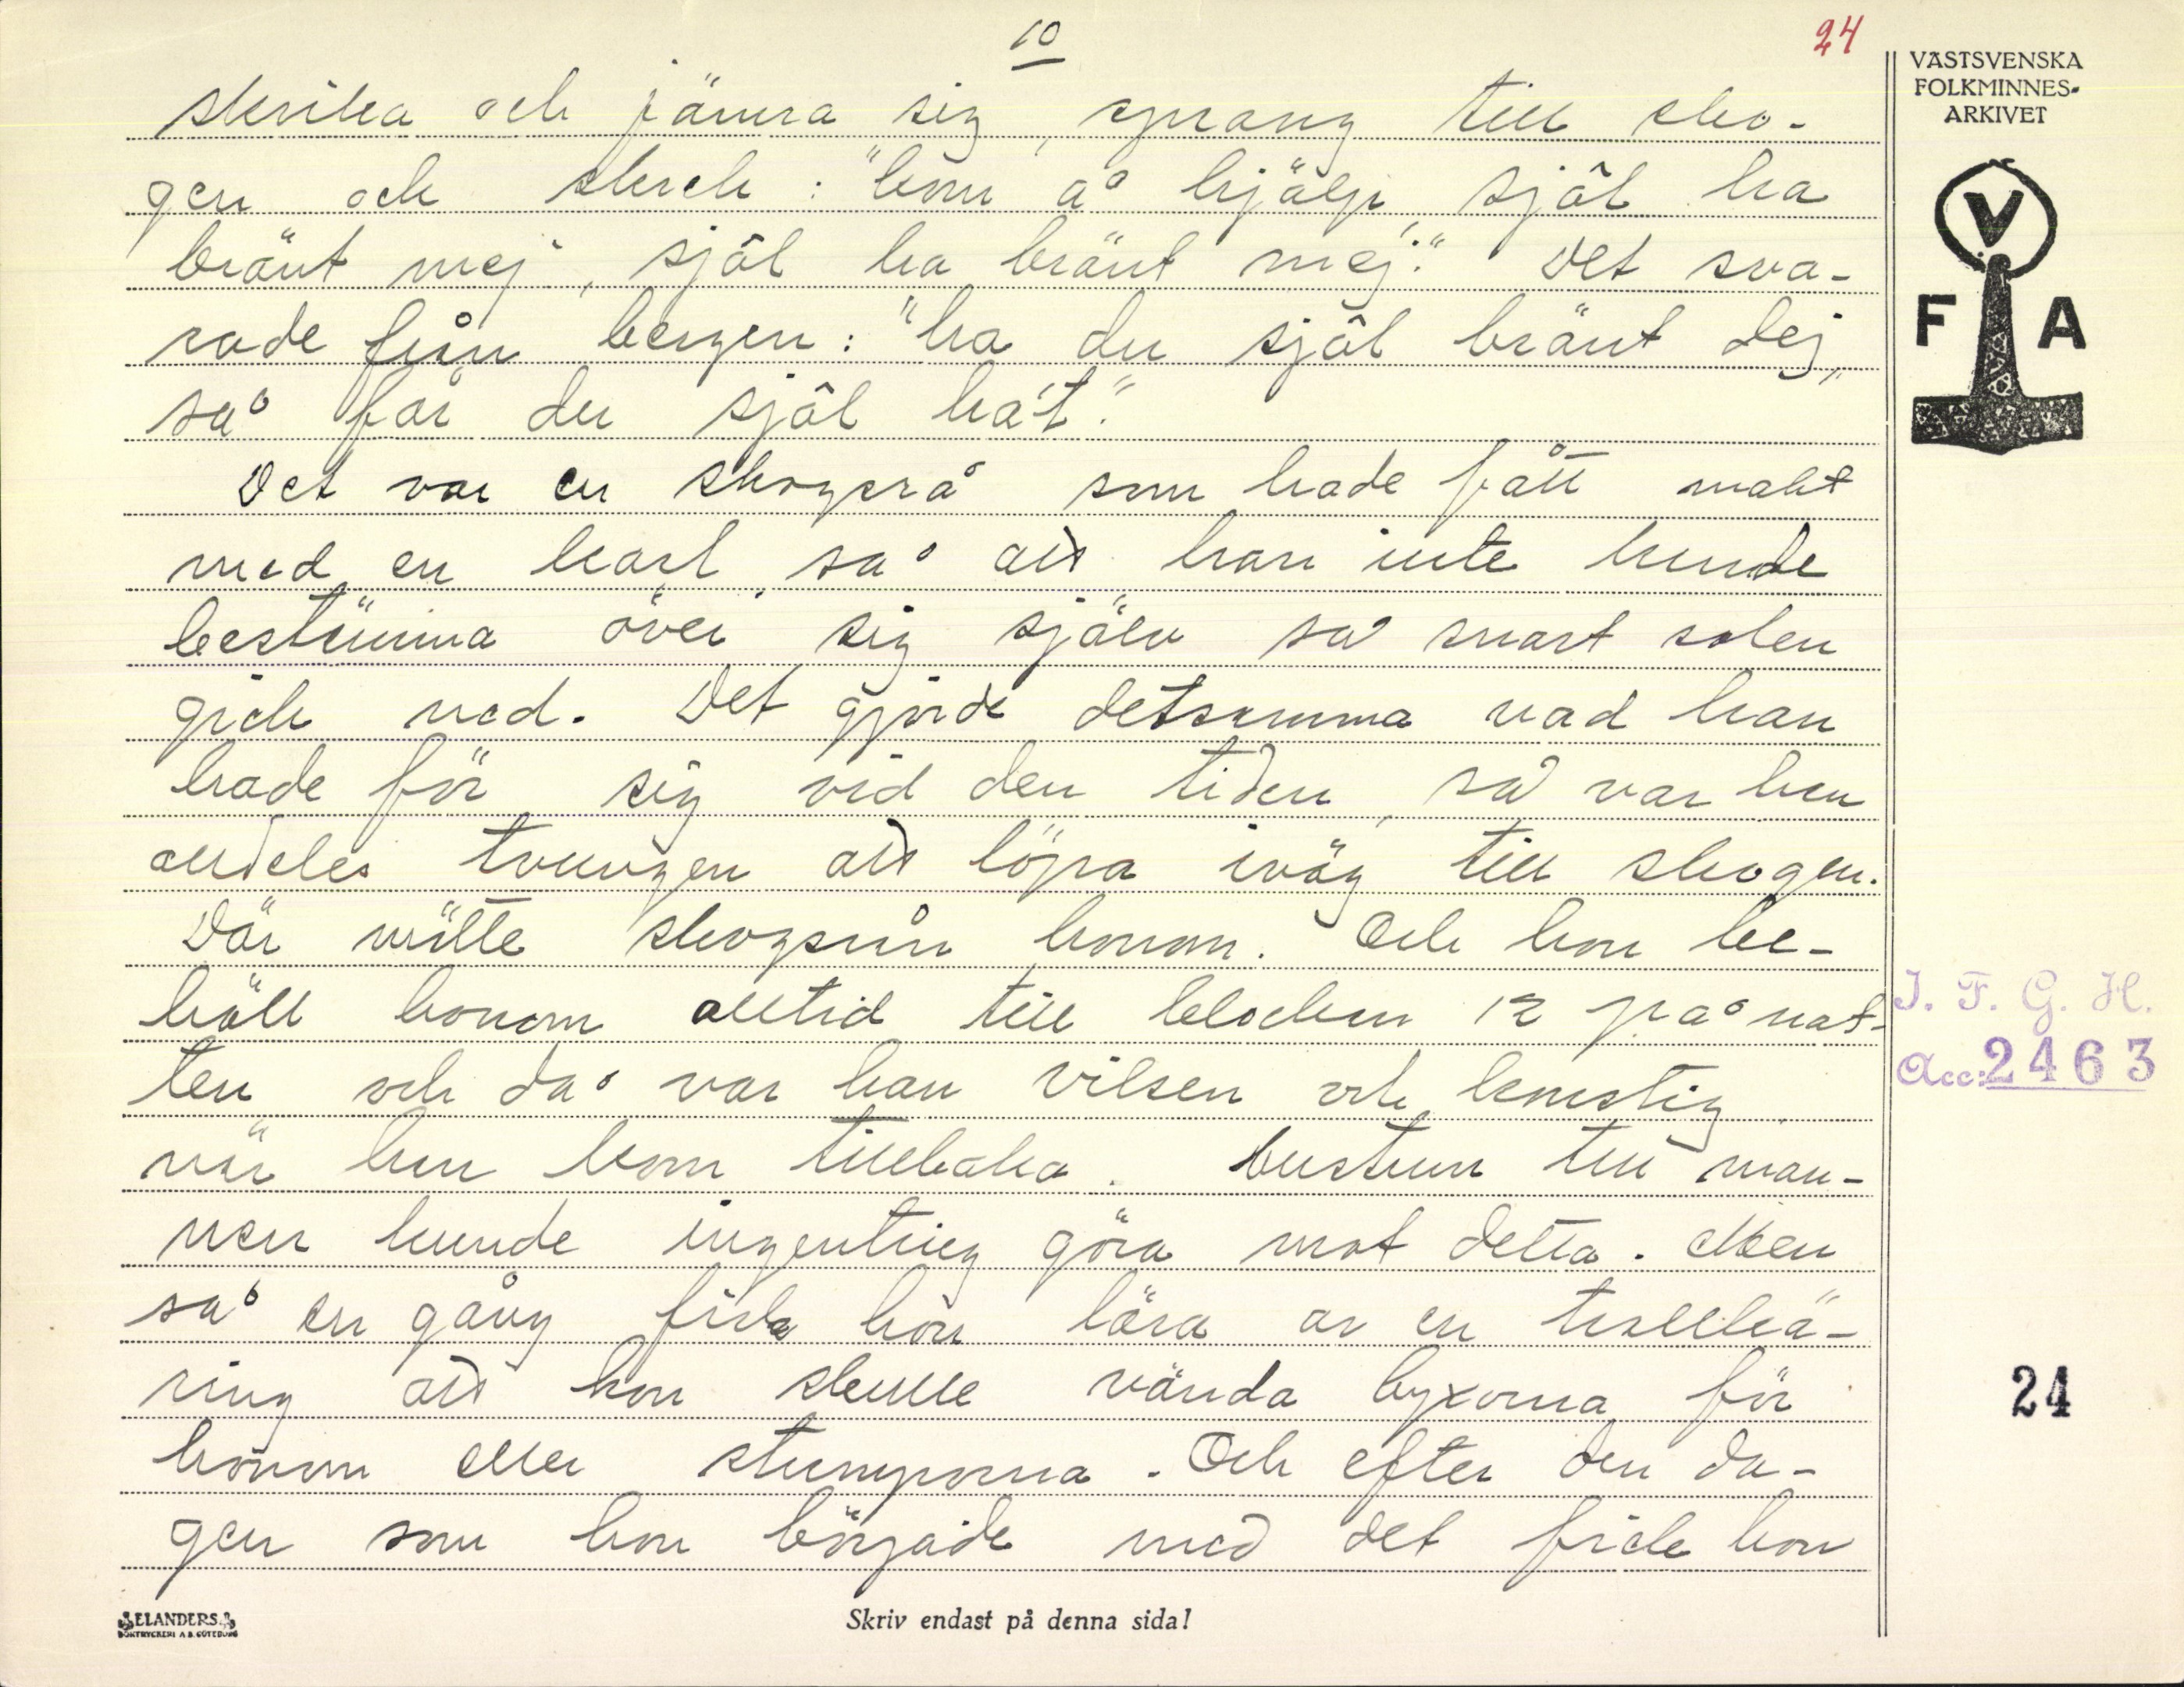 10
24
skrika och jämra sig, sprang till sko-
gen och skrek: "kom å hjälp, själ ha
bränt mej, själ ha bränt mej." Det sva-
rade från bergen: "ha du själ bränt dej,
så får du själ ha't."
Det var en skogsrå som hade fått makt
med en karl så att han inte kunde
bestämma över sig själv så snart solen
gick ned. Det gjorde detsamma vad han
hade för sig vid den tiden, så var han
alldeles tvungen att löpa iväg till skogen.
Där mötte skogsrån honom. Och hon be-
höll honom alltid till klockan 12 på nat-
ten och då var han vilsen och konstig
när han kom tillbaka. Hustrun till man-
nen kunde ingenting göra mot detta. Men
så en gång fick hon lära av en trollkä-
ring att hon skulle vända byxorna för
honom eller strumporna. Och efter den da-
gen som hon började med det fick hon
VÄSTSVENSKA
FOLKMINNES-
ARKIVET
V
F A
I. F. G. H.
Acc: 2463
24
ELANDERS
BOKTRYCKERI A.B. GÖTEBORG
Skriv endast på denna sida!